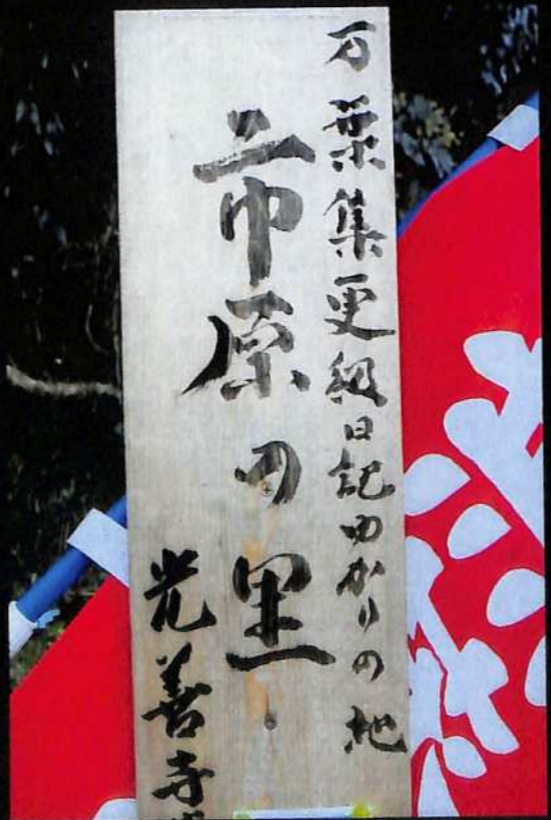 万葉集更級日記ゆかりの地
市原の里
光善寺